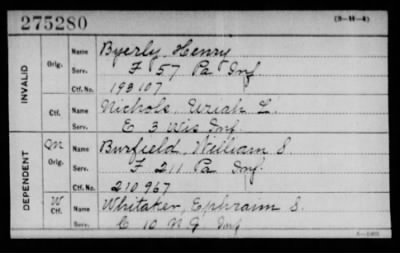 275280
(3—H—4)
INVALID
Orig.
Name Byerly Henry
Serv. F 57 Pa Inf.
Ctf. No. 193107
Ctf.
Name Nichols, Uziah L.
Serv. E 3 Wis Inf.
DEPENDENT
Orig.
Name Burfield, William S.
Serv. F 211 Pa Inf.
Ctf. No. 210967
W
Ctf.
Name Whitaker, Ephraim S.
Serv. C 10 Inf